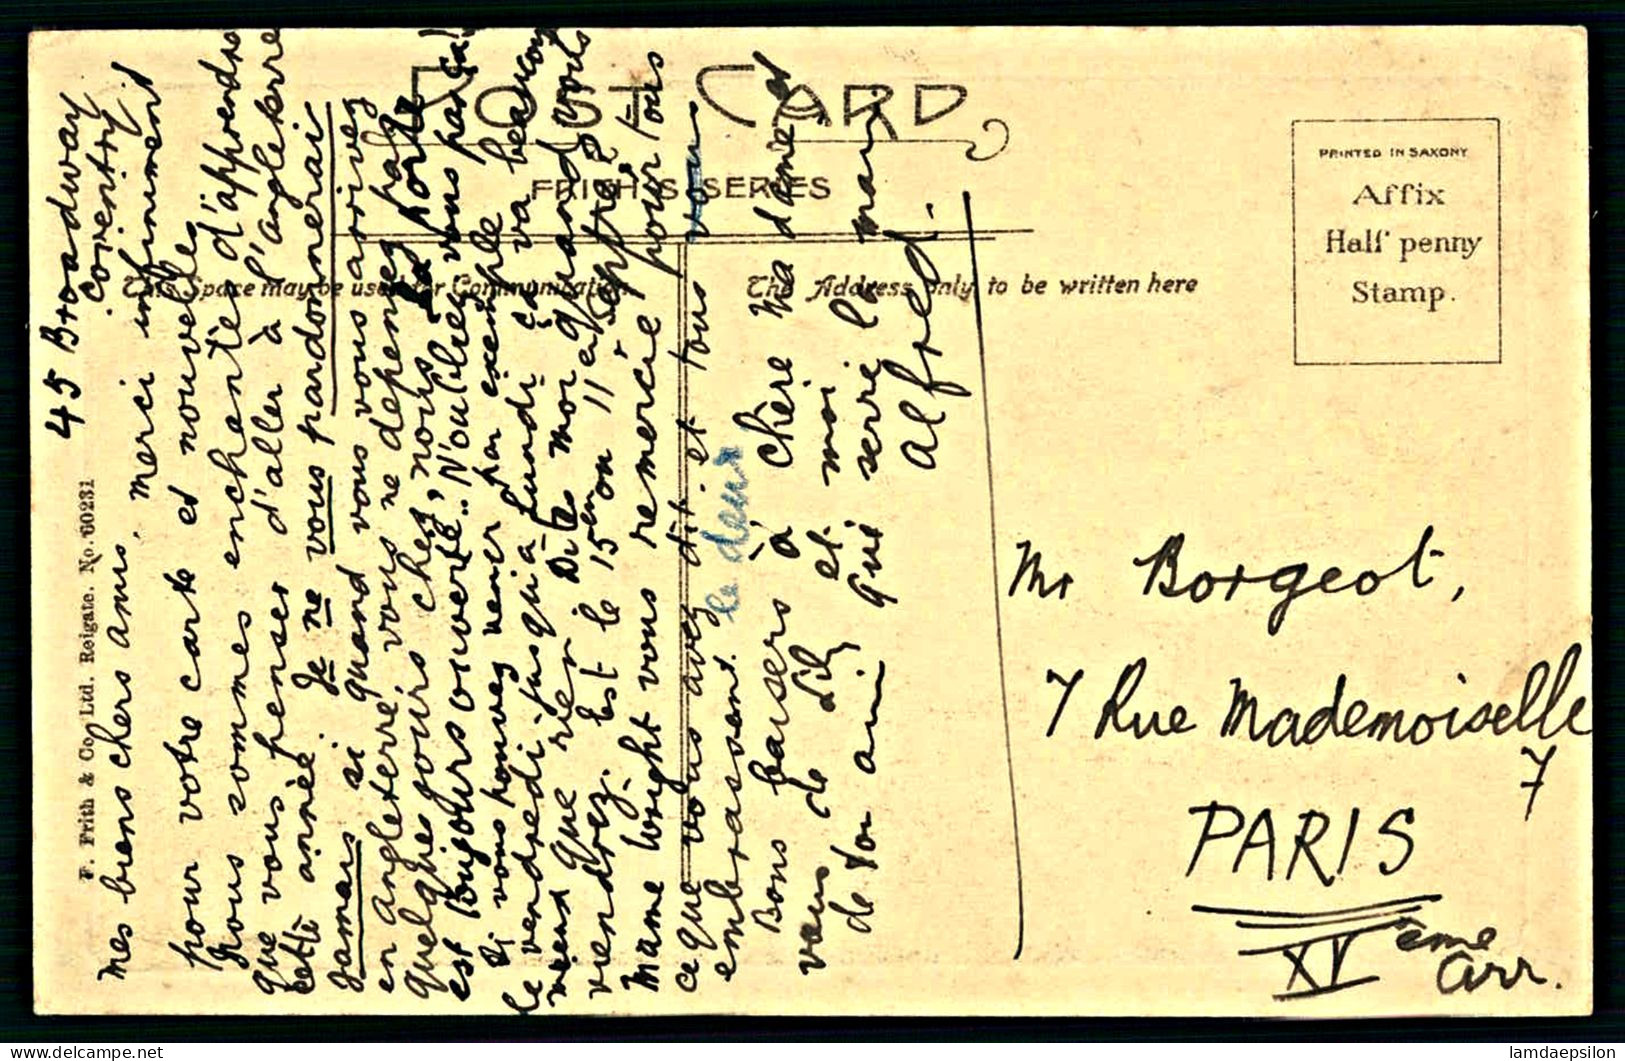 45 Broadway
Coventry
mes biens chers amis. Merci infiniment
pour votre carte et nouvelles
nous sommes enchantés d'apprendre
que vous penser d'aller à l'angleterre
cette année. Je ne vous pardonnerai
Jamais si quand vous vous arrivez
en angleterre vous ne depenez pas
quelques jours chez nous. La porte
est toujours ouverte.. N'oubliez vous pas ça!
Si vous pouvez venir par exemple
le vendredi jusqu'a Lundi ça va beaucoup
mieux que rien. Dites moi quand vous
viendrez. Est le 15em ou 11 Septre?
Mame Wright vous remercie pour tous
ce que vous avez dit. et tous vous
embrassent. le deux
Bons baisers à chère Madame et
vous de Lily et moi la main
de ton ami qui serre
Alfred.
POST CARD
FRITH'S SERIES
This Space may be used for Communication
The Address only to be written here
PRINTED IN SAXONY
Affix
Half penny
Stamp.
Mr Borgeot,
7 Rue Mademoiselle
7
PARIS
XVeme Arr.
F. Frith & Co., Ltd. Reigate. No. 60231
lamdaepsilon
delcampe.net